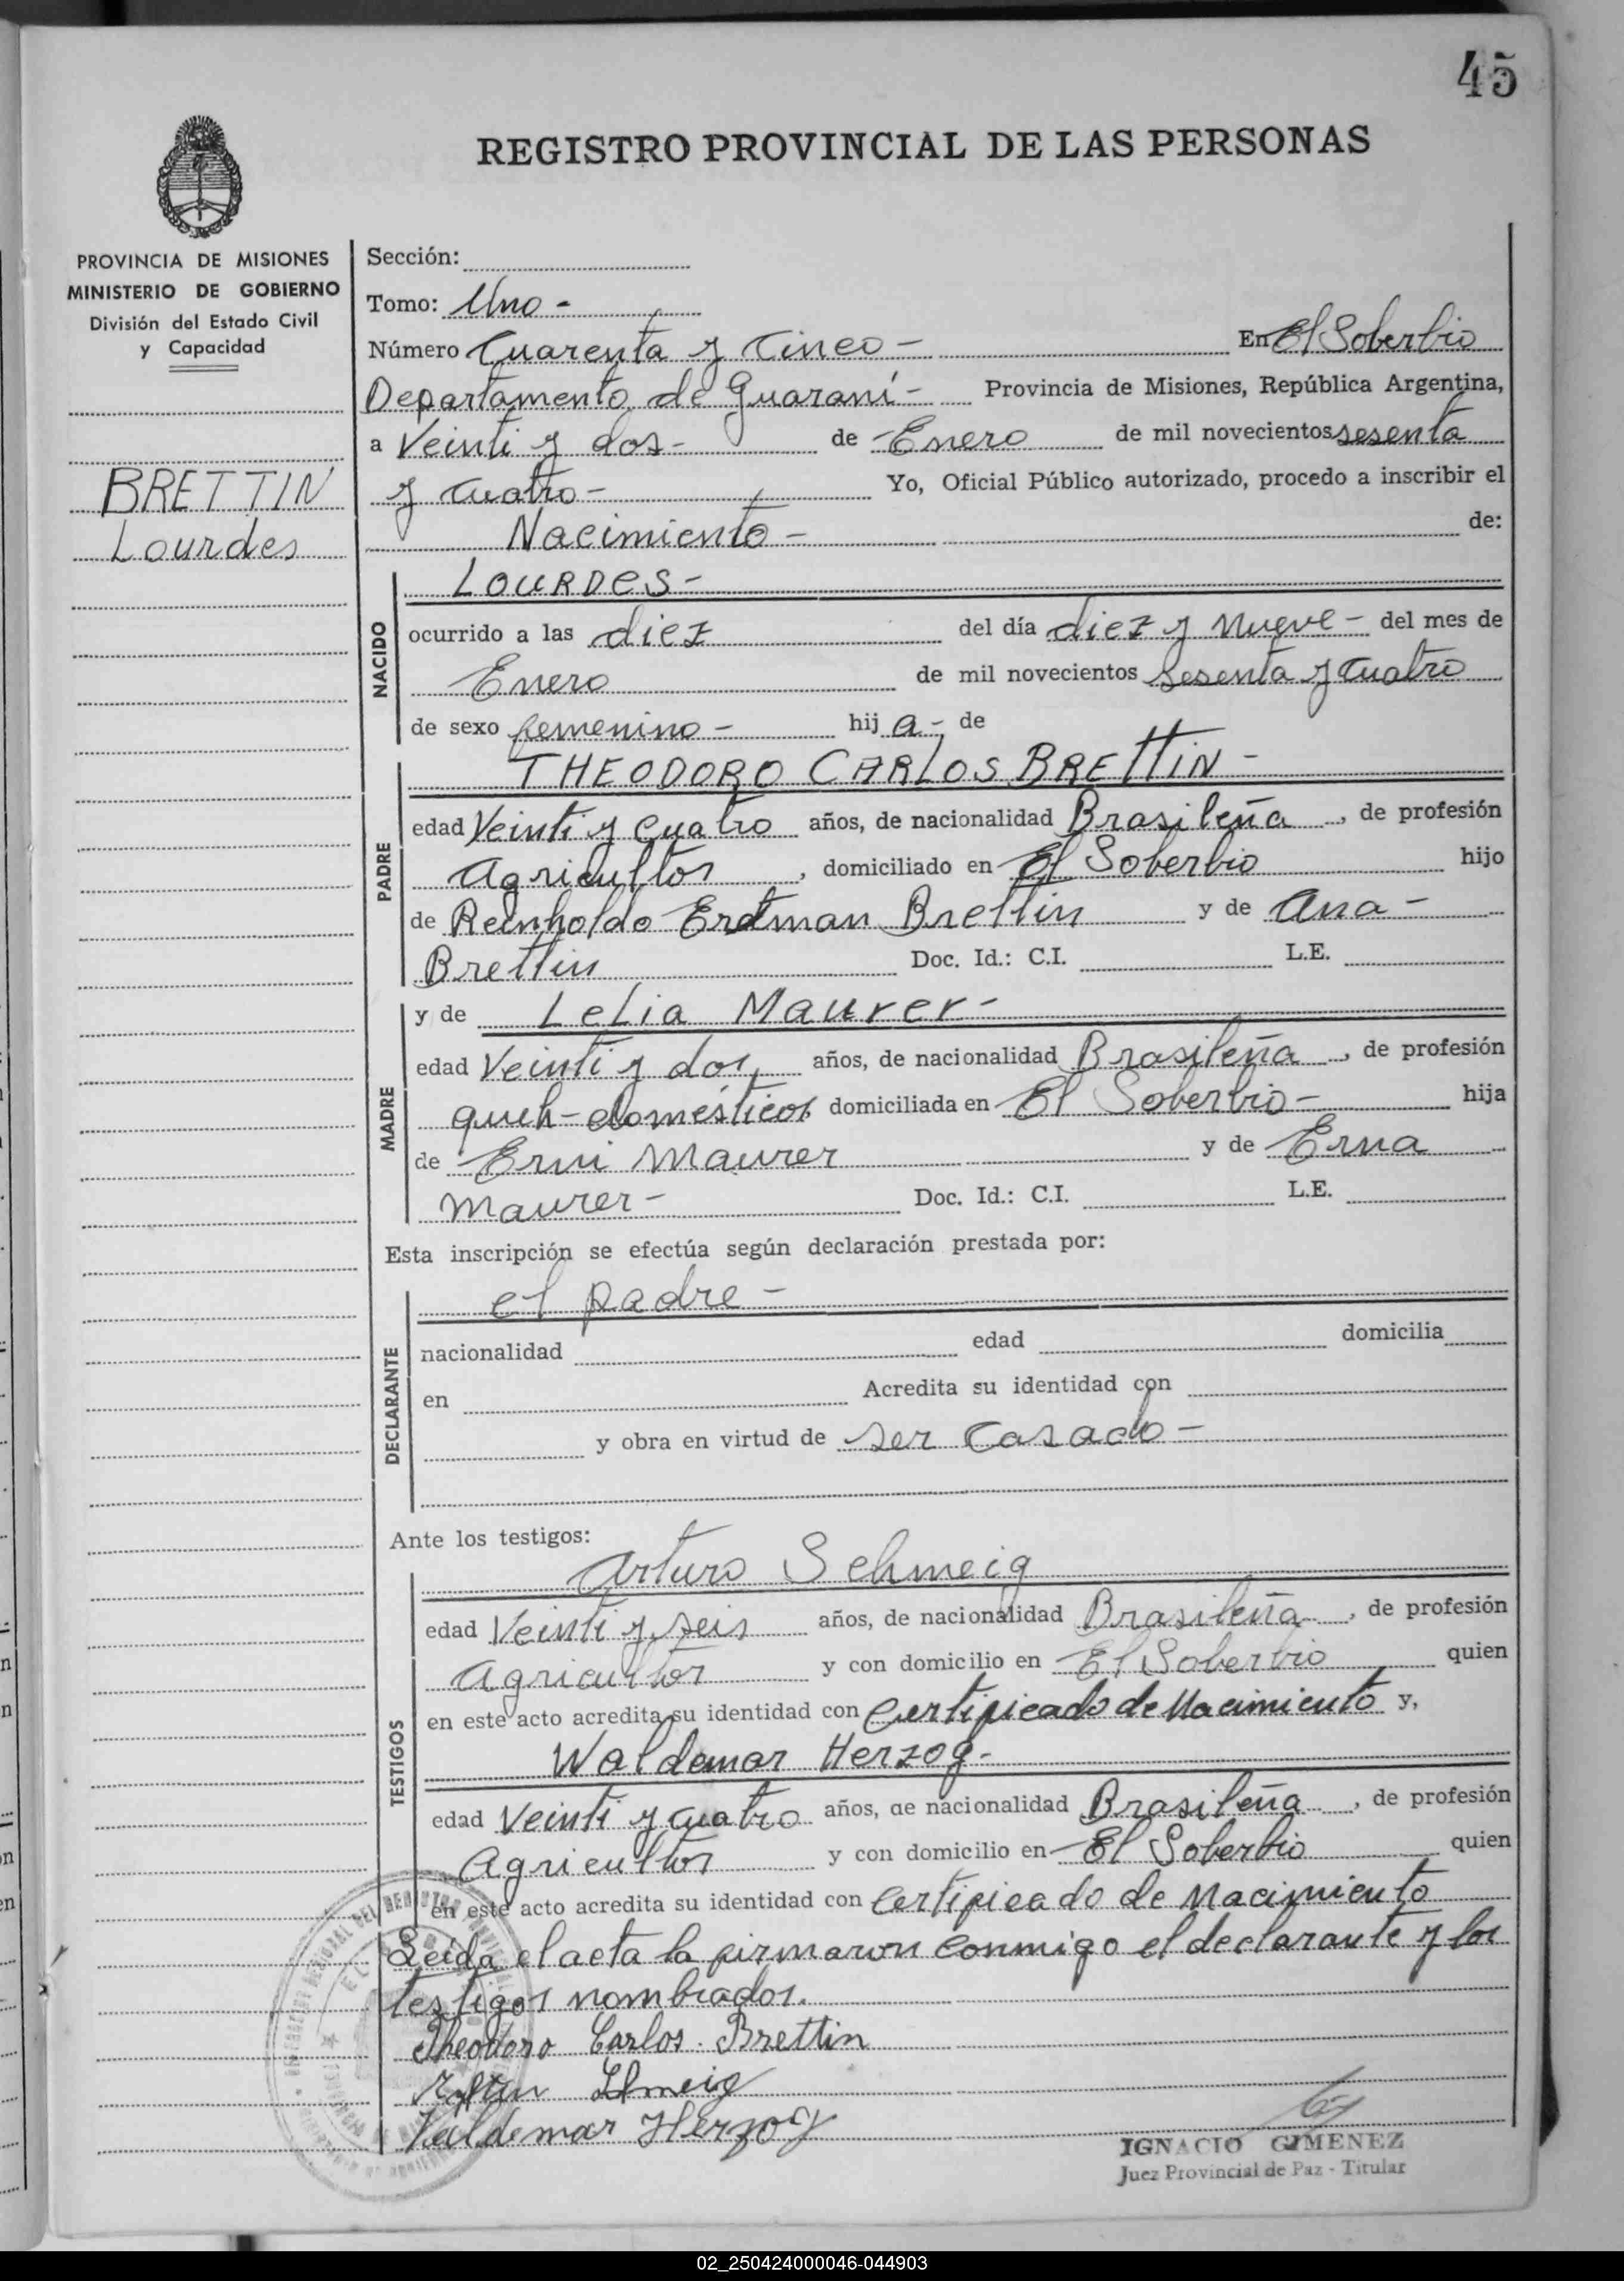 45
REGISTRO PROVINCIAL DE LAS PERSONAS
PROVINCIA DE MISIONES
MINISTERIO DE GOBIERNO
División del Estado Civil
y Capacidad
BRETTIN
Lourdes
Sección:
Tomo: Uno -
Número Cuarenta y Cinco - En El Soberbio
Departamento de Guaraní - Provincia de Misiones, República Argentina,
a Veinti y dos - de - Enero de mil novecientos sesenta
y cuatro - Yo, Oficial Público autorizado, procedo a inscribir el
Nacimiento - de:
NACIDO
LOURDES -
ocurrido a las diez del día diez y nueve - del mes de
Enero de mil novecientos sesenta y cuatro
de sexo femenino - hij a - de
PADRE
THEODORO CARLOS BRETTIN -
edad Veinti y cuatro años, de nacionalidad Brasileña, de profesión
agricultor, domiciliado en El Soberbio hijo
de Reinholdo Erdman Brettin y de Ana -
Brettin Doc. Id.: C.I. L.E.
MADRE
y de Lelia Maurer -
edad Veinti y dos años, de nacionalidad Brasileña, de profesión
queh-domésticos domiciliada en El Soberbio - hija
de Erni Maurer y de Erna
Maurer - Doc. Id.: C.I. L.E.
Esta inscripción se efectúa según declaración prestada por:
DECLARANTE
el padre -
nacionalidad edad domicilia
en Acredita su identidad con
y obra en virtud de ser casado -
Ante los testigos:
TESTIGOS
Arturo Schmeig
edad Veinti y seis años, de nacionalidad Brasileña, de profesión
agricultor y con domicilio en El Soberbio quien
en este acto acredita su identidad con Certificado de Nacimiento y,
Waldemar Herzog -
edad Veinti y cuatro años, de nacionalidad Brasileña, de profesión
Agricultor y con domicilio en - El Soberbio quien
en este acto acredita su identidad con Certificado de Nacimiento
Leida el acta la firmaron conmigo el declarante y los
testigos nombrados.
Theodoro Carlos Brettin
Valdemar Herzog
IGNACIO GIMENEZ
Juez Provincial de Paz - Titular
02_250424000046-044903